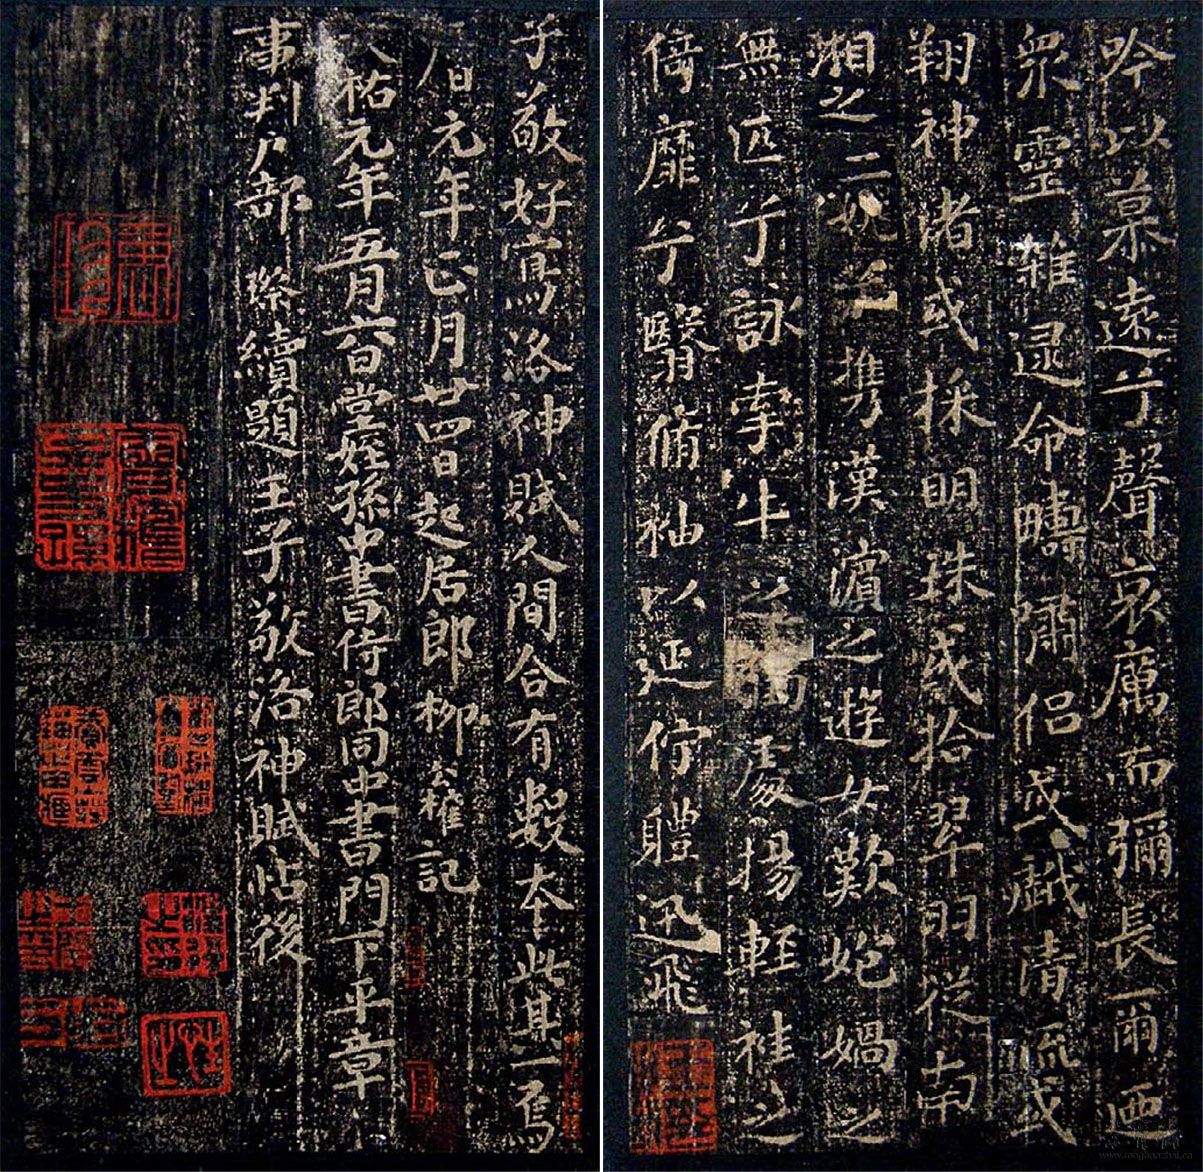 吟以慕遠兮聲哀厲而彌長爾迺
眾靈雜遝命疇嘯侶或戲清流或
翔神渚或採明珠或拾翠羽從南
湘之二姚兮携漢濱之遊女歎匏媧之
無匹兮詠牽牛之獨處揚輕袿之
倚靡兮翳脩袖以延佇軆迅飛
子敬好寫洛神賦人間合有數本此其一焉
元年正月廿四日起居郎柳公權記
祐元年五月六日堂姪孫中書侍郎同中書門下平章
事判户部 璨續題王子敬洛神賦帖後
www.rongbaozhai.cn